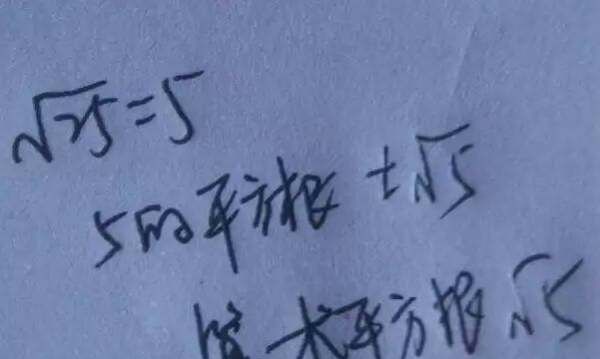 √25=5
5的平方根 ±√5
算术平方根√5